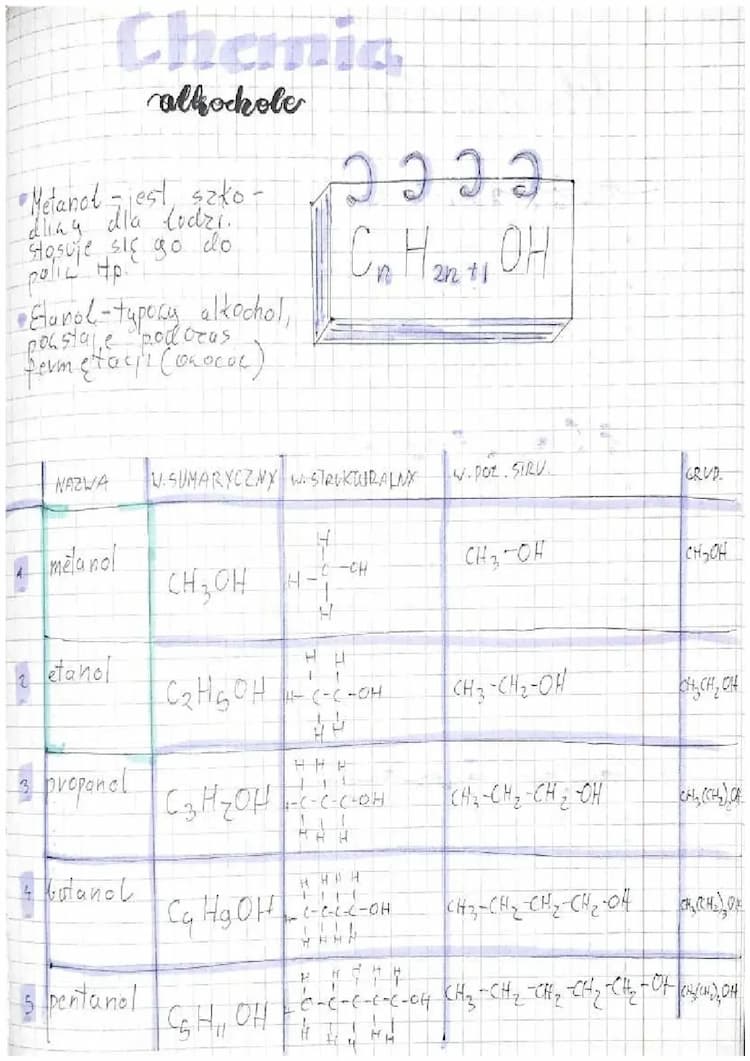 Chemia
alkochole
• Metanol - jest szko-
dliwy dla ludzi.
stosuje się go do
paliw np.
• Etanol - typowy alkochol,
powstaje podczas
fermętacji (owoców)
CnH2n+1OH
NAZWA W. SUMARYCZNY W. STRUKTURALNY W. PÓŁ. STRU. GRUP.
1 metanol CH3OH CH3-OH CH3OH
H
H-C-OH
H
2 etanol C2H5OH CH3-CH2-OH CH3CH2OH
H H
H-C-C-OH
H H
3 propanol C3H7OH CH3-CH2-CH2-OH CH3(CH2)2OH
H H H
-C-C-C-OH
H H H
4 butanol C4H9OH CH3-CH2-CH2-CH2-OH CH3(CH2)3OH
H H H H
-C-C-C-C-OH
H H H H
5 pentanol C5H11OH CH3-CH2-CH2-CH2-CH2-OH CH3(CH2)4OH
H H H H H
-C-C-C-C-C-OH
H H H H H